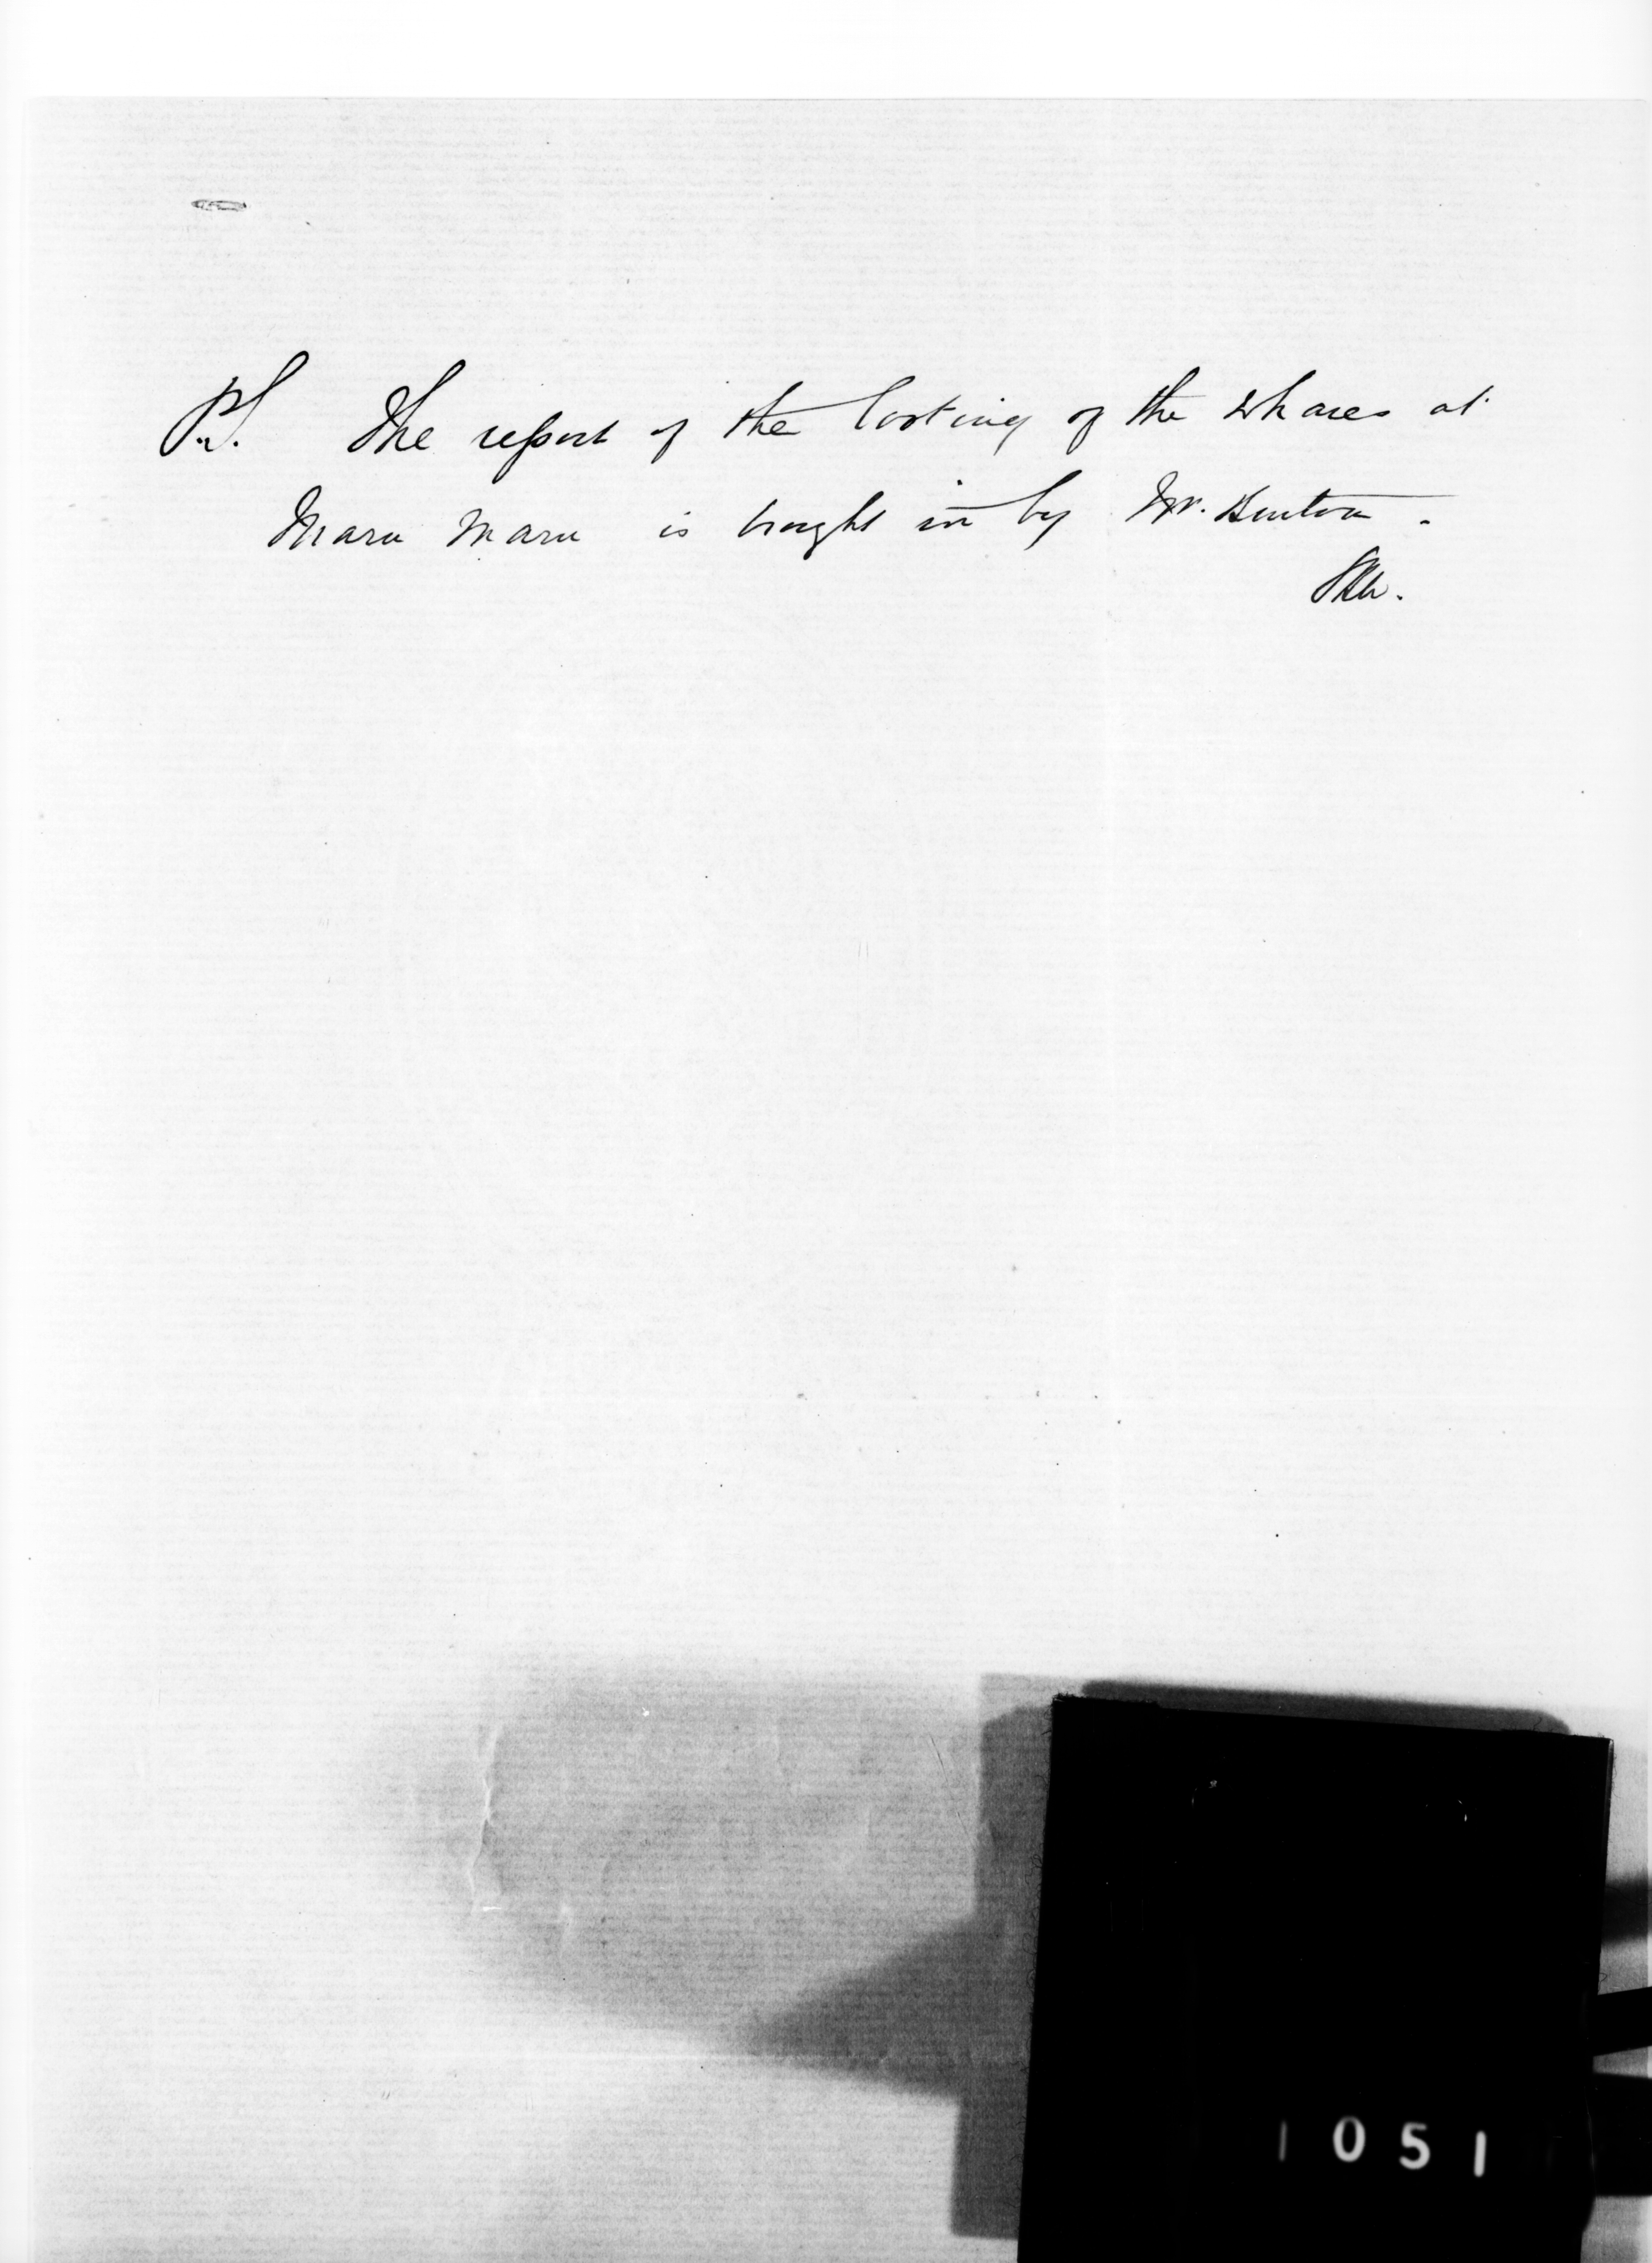 P.S. The report of the looting of the Whares at
Maru Maru is brought in by Mr.
1051